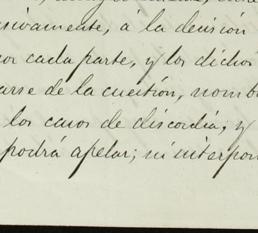 sivamente, á la decision
por cada parte, y los dichos
arse de la cuestion, nomb
los casos de discordia, y
podrá apelar; ni interpon